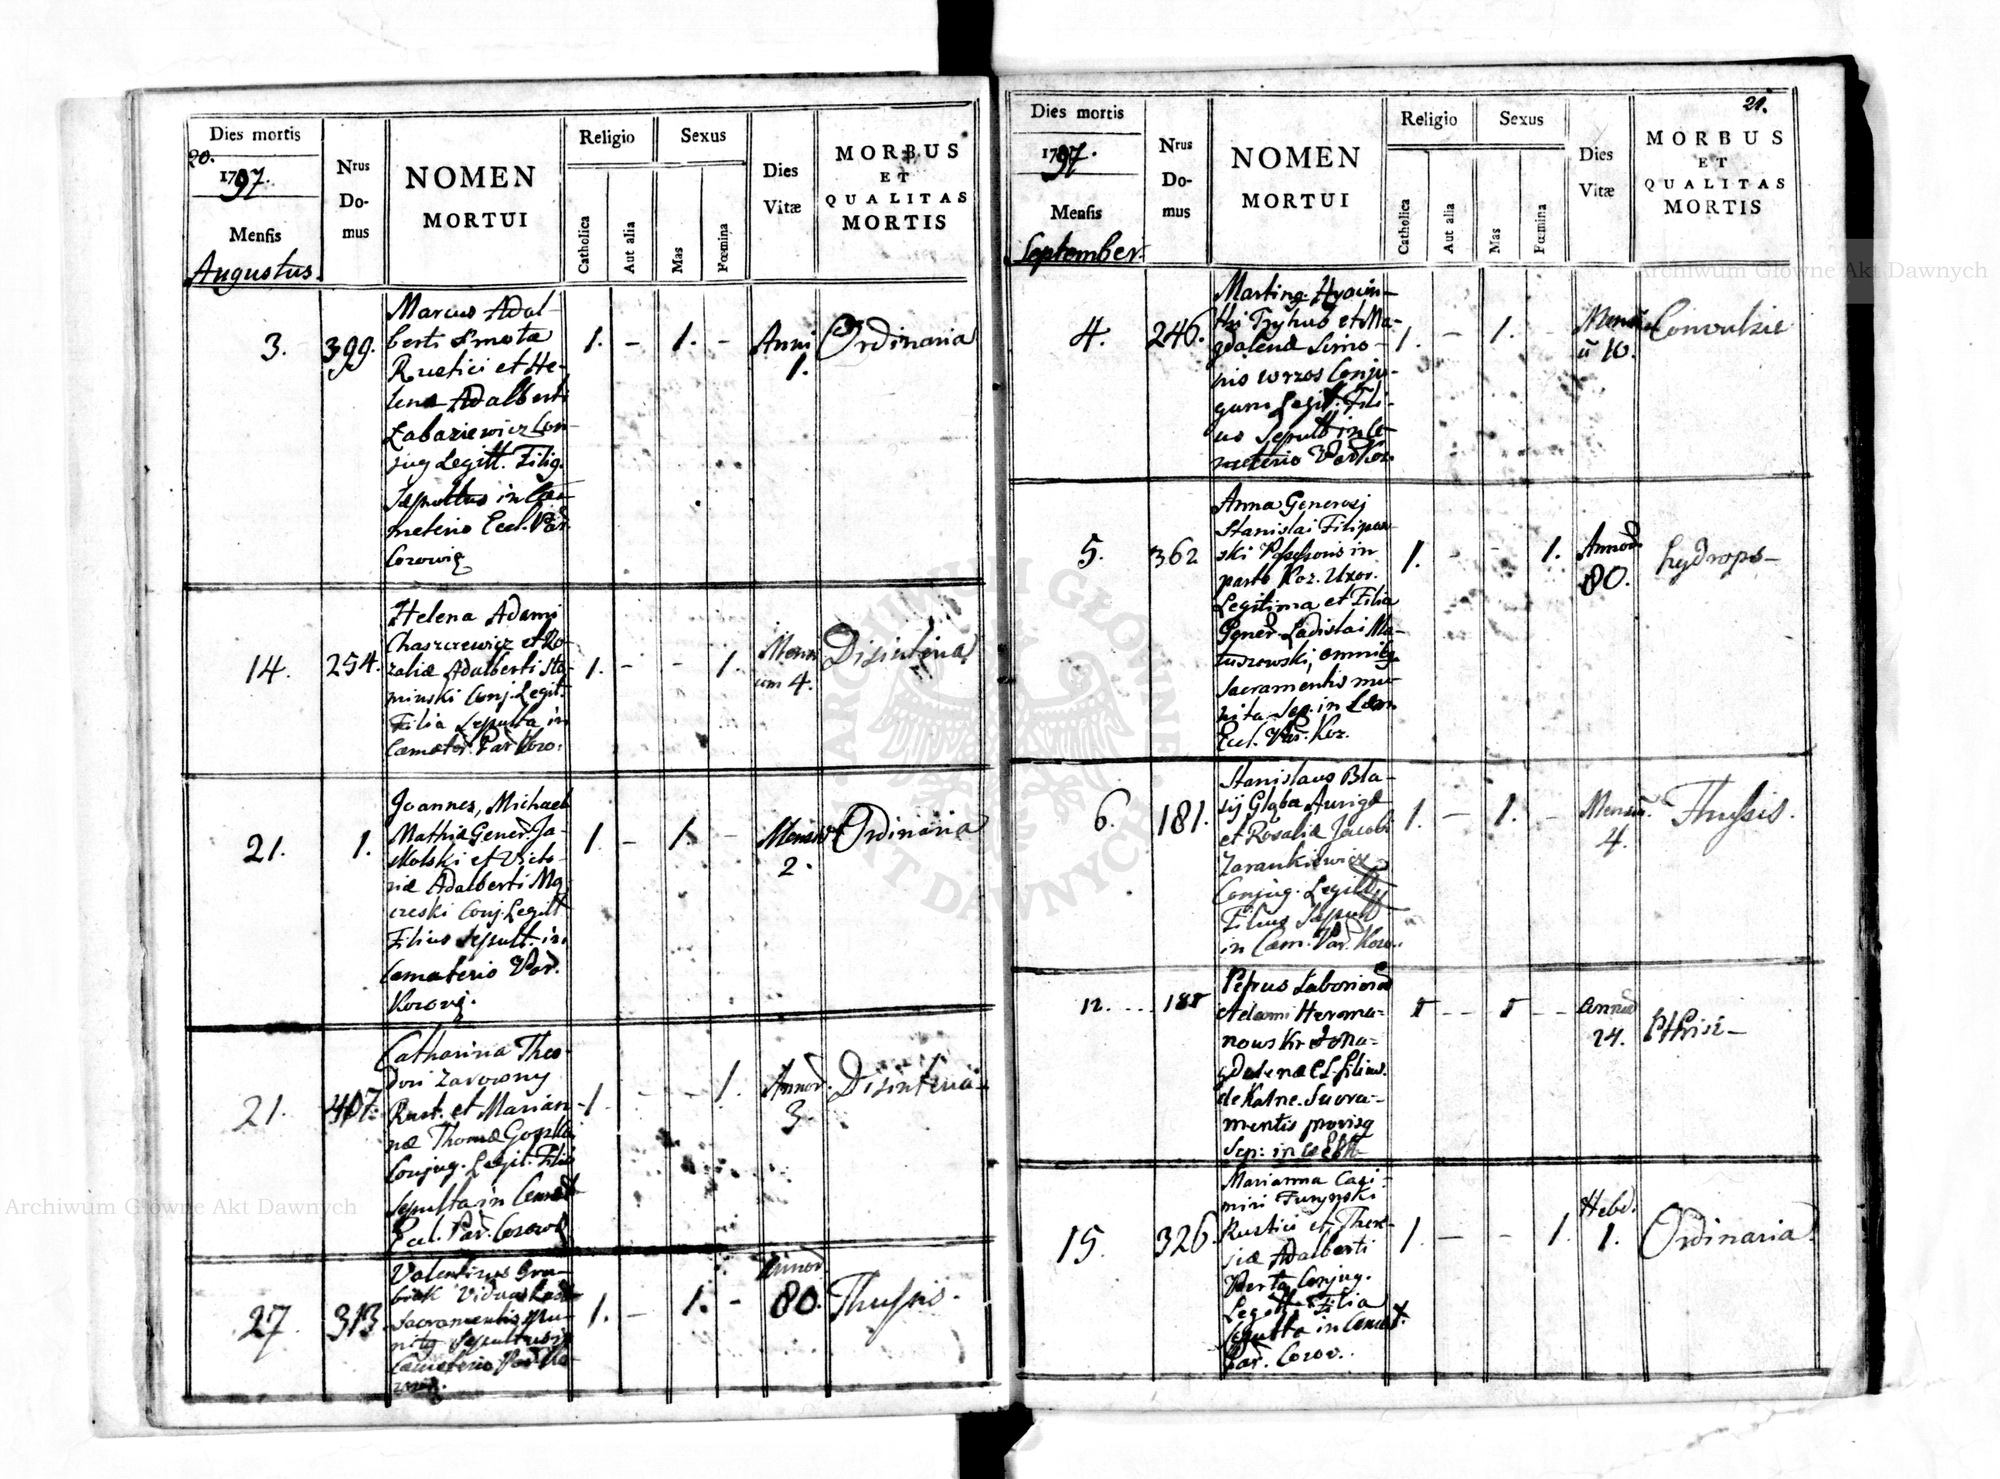 20.
Dies mortis
1797.
Mensis
Augustus.
Nrus
Do-
mus
NOMEN
MORTUI
Religio
Catholica
Aut alia
Sexus
Mas
Fœmina
Dies
Vitæ
MORBUS
ET
QUALITAS
MORTIS
3.
399.
Marcus Adal-
berti
Rustici et He-
lenæ Adalberti
Łabaziewicz Con-
jug Legitt. Filig.
Sepultus in Cæ-
meterio Eccl. Par.
1.
-
1.
-
Anni
1.
Ordinaria
14.
254.
Helena Adami
Chaszczewicz et Ro-
zaliæ Adalberti Sto-
minski Conj. Legit.
Filia Sepulta in
Cæmeter. Par. Kozo.
1.
-
-
1.
Mensi
um 4.
Disinteria
21.
1.
Joannes, Michael
Mathiæ Gener. Ja-
skolski et Victo-
riæ Adalberti
Conj. Legitt
Filius Sepult. in
Cæmeterio Par.
1.
-
1.
-
Mensiu
2.
Ordinaria
21.
407.
Catharina Theo-
dori Zarowny
Rust. et Marian-
næ Thomæ
Conjug. Legit. Filia
Sepulta in Cemet
Eccl. Par.
1.
-
-
1.
Annor.
3.
Disinteria
27.
313.
Valentinus Gra-
Viduus
Sacramentis mu-
nitg Sepultus in
Cæmeterio Par Ko-
1.
-
1.
-
Annor.
80.
Thysis.
21.
Dies mortis
1797.
Mensis
September.
Nrus
Do-
mus
NOMEN
MORTUI
Religio
Catholica
Aut alia
Sexus
Mas
Fœmina
Dies
Vitæ
MORBUS
ET
QUALITAS
MORTIS
4.
246.
Marting Hyacin-
thi et Ma-
gdalenæ Simo-
nis Wrzos Conju-
gum Legit. Fili-
us Sepult in Ce-
meterio Par Koz.
1.
-
1.
-
10.
Convulsie
5.
362
Anna Generosi
Stanislai Filipow-
ski Possessoris in
parte Koz. Uxor.
Legitima et Filia
Gener. Ladislai Ma-
omnibg
Sacramentis mu-
nita Sep. in Cæm
Eccl. Par. Koz.
1.
-
-
1.
Annor.
80.
hydrops-
6.
181.
Stanislaus Bla-
sij Aurigæ
et Rosaliæ Jacobi
Zarankiewicz
Conjug. Legitt
Filius Sepult
in Cæm. Par. Kozo.
1.
-
1.
-
Mensiu.
4.
Thysis.
12.
188
Petrus
Adami Heroma-
nowski et Ma-
gdalenæ C.L. filius.
de Katne. Sacra-
mentis provisg
Sep: in
1
-
1
-
Annor
24.
15.
326.
Marianna Casi-
miri
Rustici et There-
siæ Adalberti
Conjug.
Legitt. Filia
Sepulta in Cemet.
Par. Cozov.
1.
-
-
1.
Hebd.
1.
Ordinaria.
ARCHIWUM GŁÓWNE AKT DAWNYCH
Archiwum Główne Akt Dawnych
Archiwum Główne Akt Dawnych